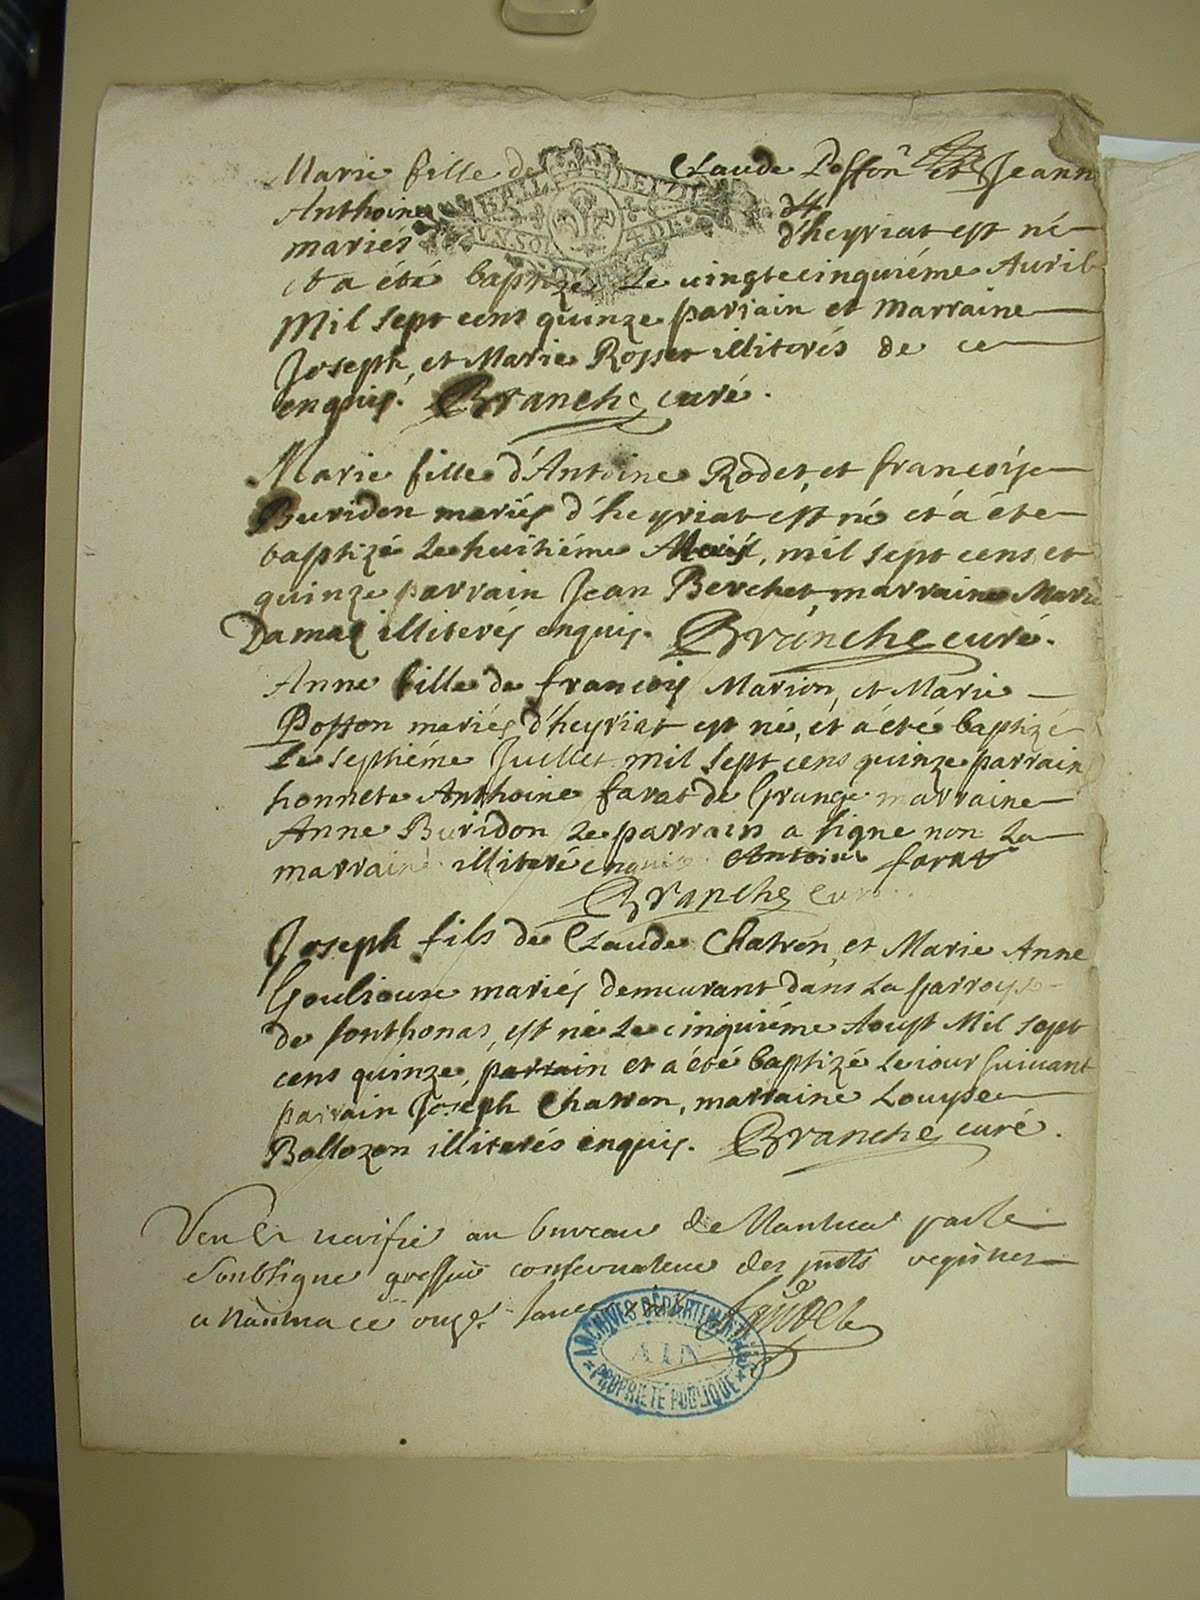 Marie fille de Claude Poffon et Jeann
Anthoine
mariés d'heyriat est né
et a été baptizé le vingtecinquiéme Auril
Mil sept cens quinze parrain et Marraine
Joseph, et Marie Rosset illiterés de ce
enquis. Branche curé.
Marie fille d'Antoine Rodet, et francoise
Buridon mariés d'heyriat est né et à éte
baptizé le huitiéme, mil sept cens et
quinze parrain Jean Berchet, marraine Marie
Damaz illiterés enquis. Branche curé.
Anne fille de francois Marion, et Marie
Poffon mariés d'heyriat est né, et à été baptizé
le septiéme Juillet mil sept cens quinze parrain
honnete Anthoine farat de Grange marraine
Anne Buridon le parrain a signe non la
marraine illiteré enquis. Antoine farat
Branche curé
Joseph fils de Claude Chatron, et Marie Anne
Goulioure mariés demeurant dans la parroysse
de sonthonas, est né le cinquiéme Aoust Mil sept
cens quinze, parrain et a été baptizé le iour suivant
parrain Joseph Chatron, marraine Louyse
Bollozon illiterés enquis. Branche curé.
Veu et verifié au bureau de Nantua par le
soubsigne greffier conservateur des registres
a Nantua ce
ARCHIVES DÉPARTEMENTALES
AIN
PROPRIÉTÉ PUBLIQUE